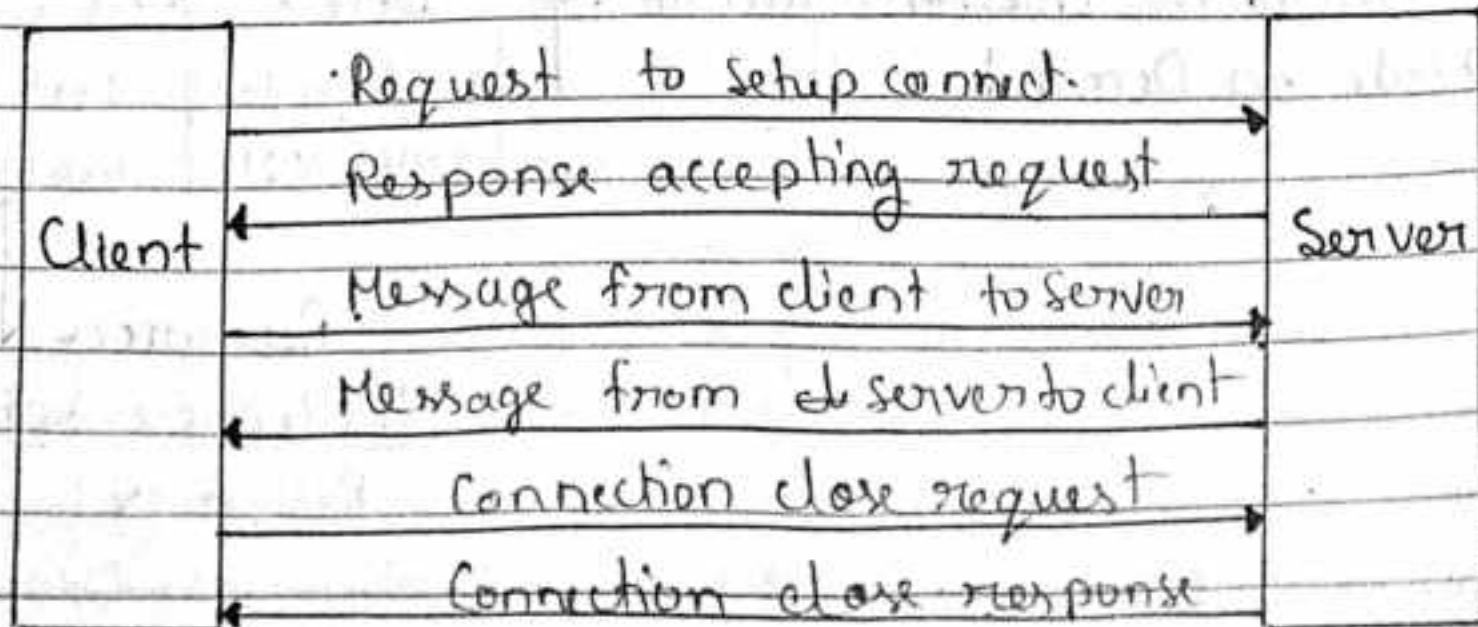 Request to setup connect.
Response accepting request
Client
Server
Message from client to server
Message from server to client
Connection close request
Connection close response